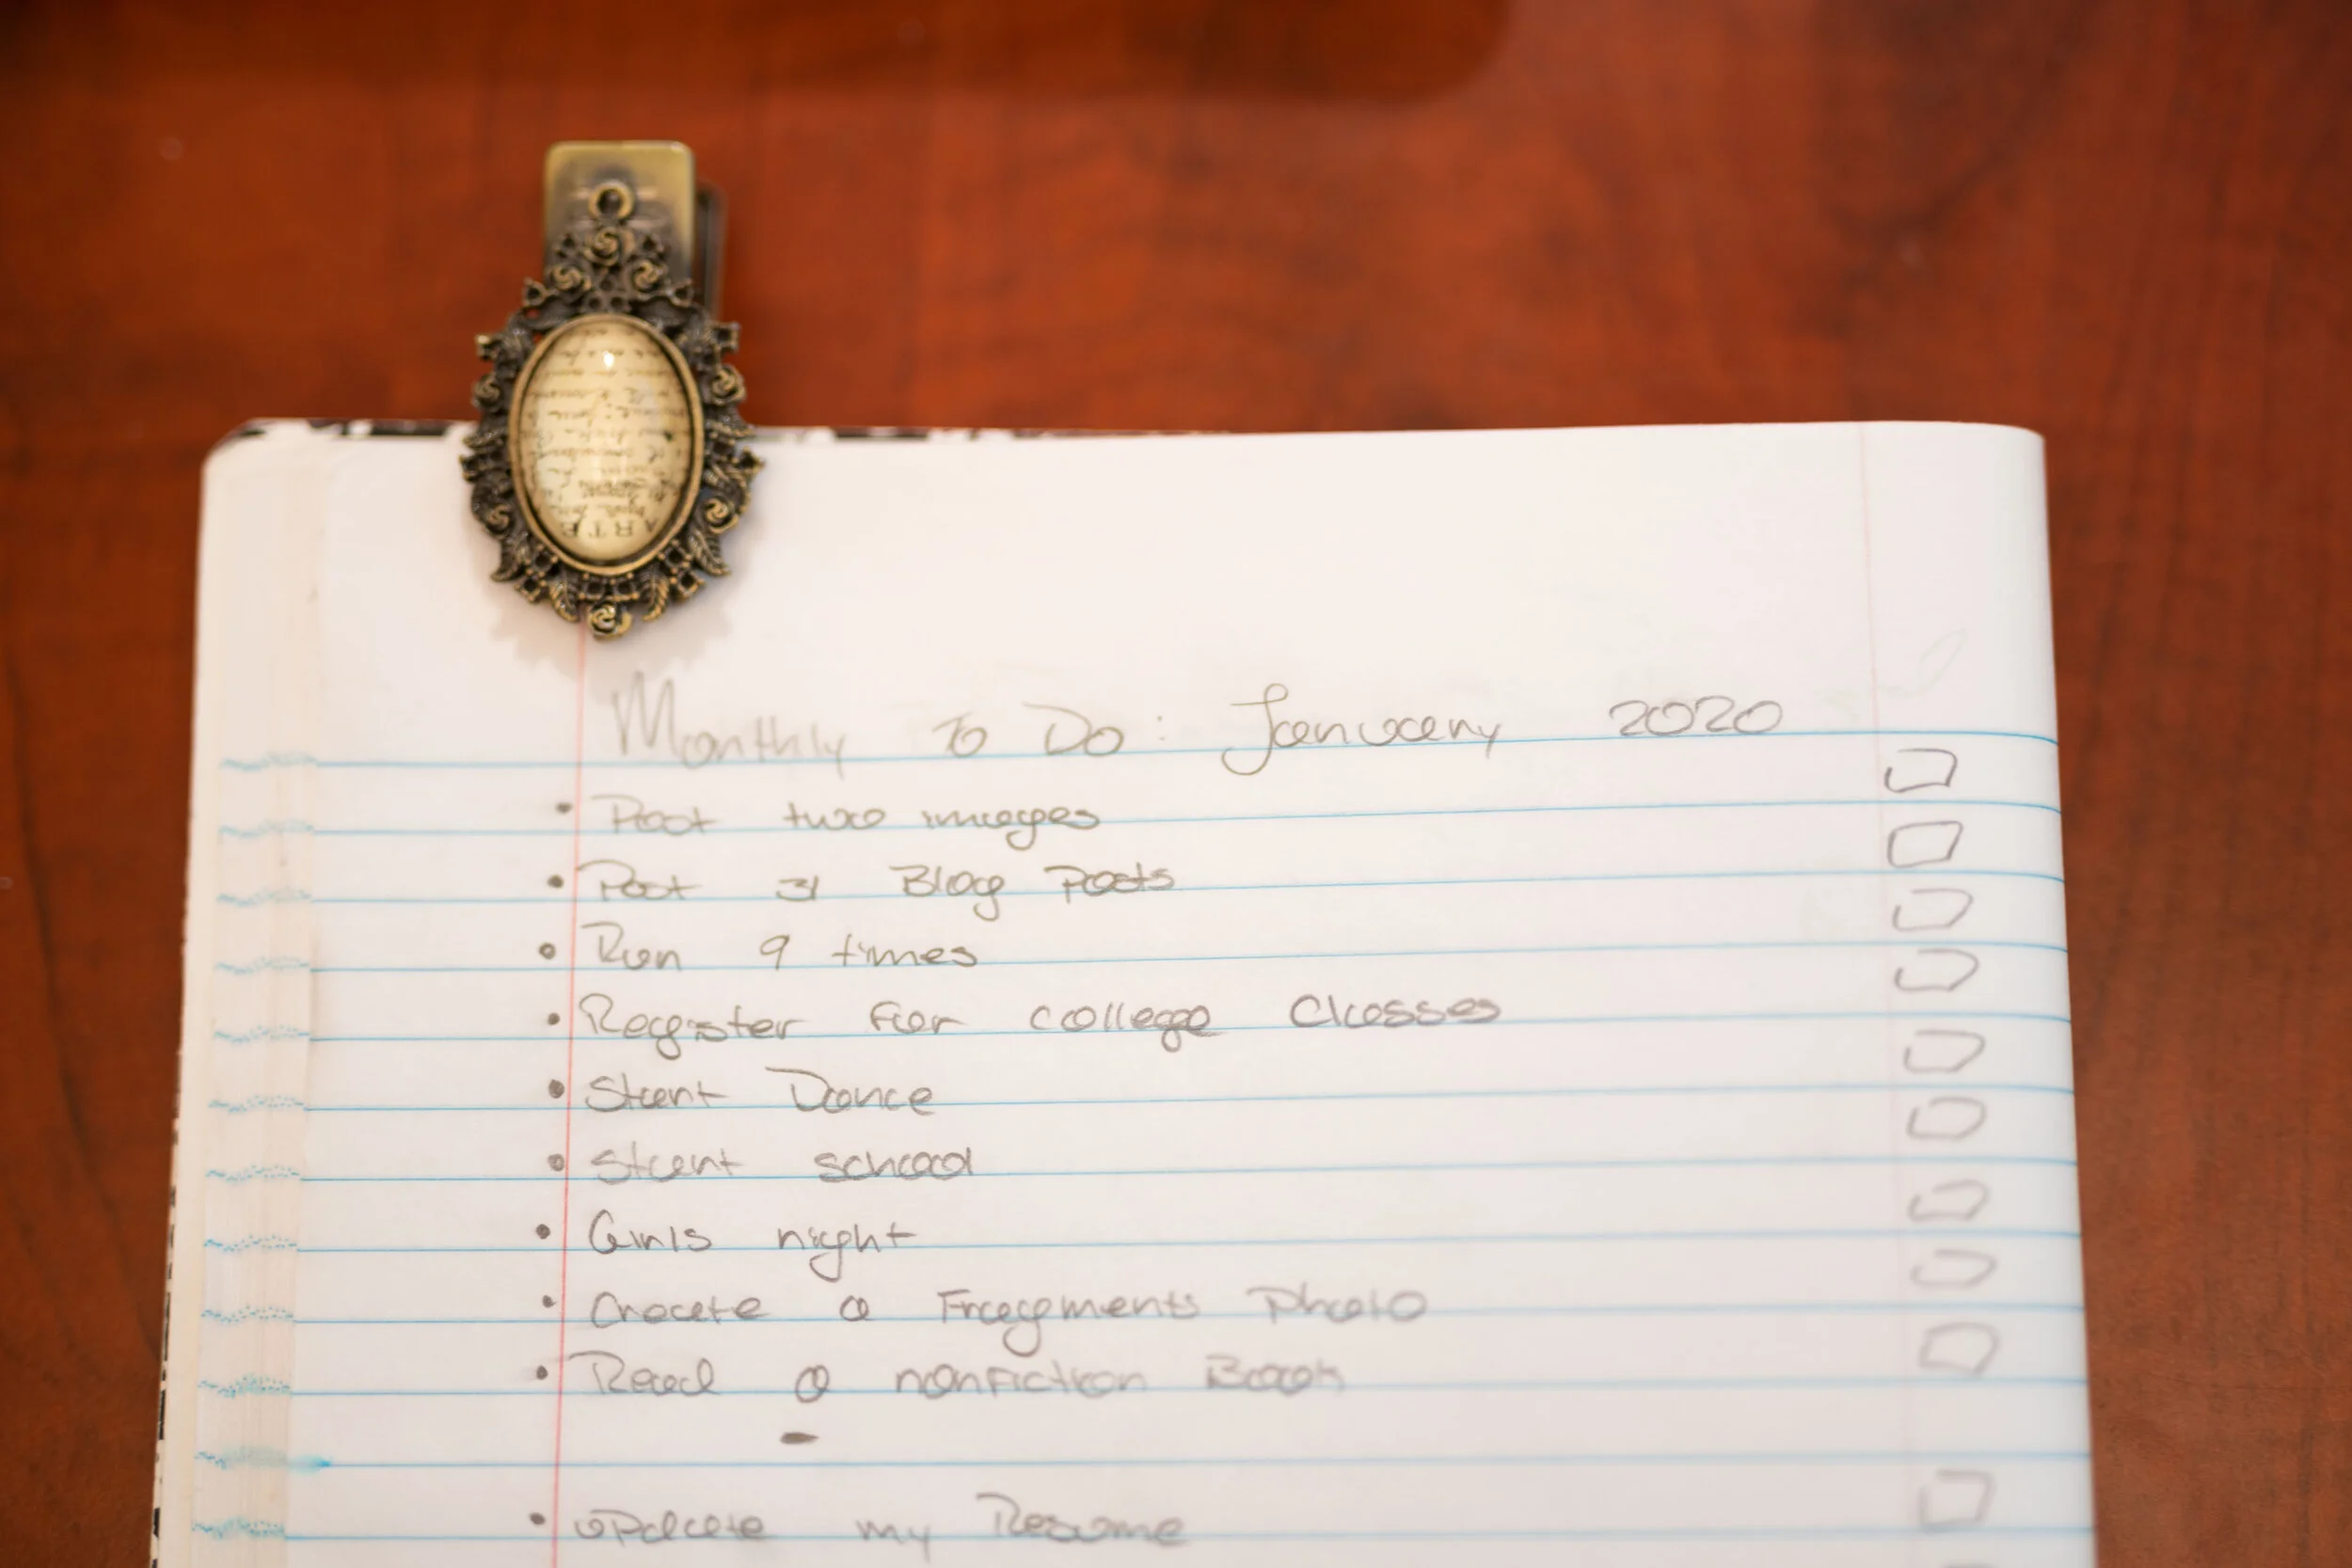 Monthly To Do: January 2020
• Post two images
• Post 31 Blog Posts
• Run 9 times
• Register for college Classes
• Start Dance
• Start school
• Girls night
• Create a Fragments Photo
• Read a nonfiction Book
-
• update my Resume